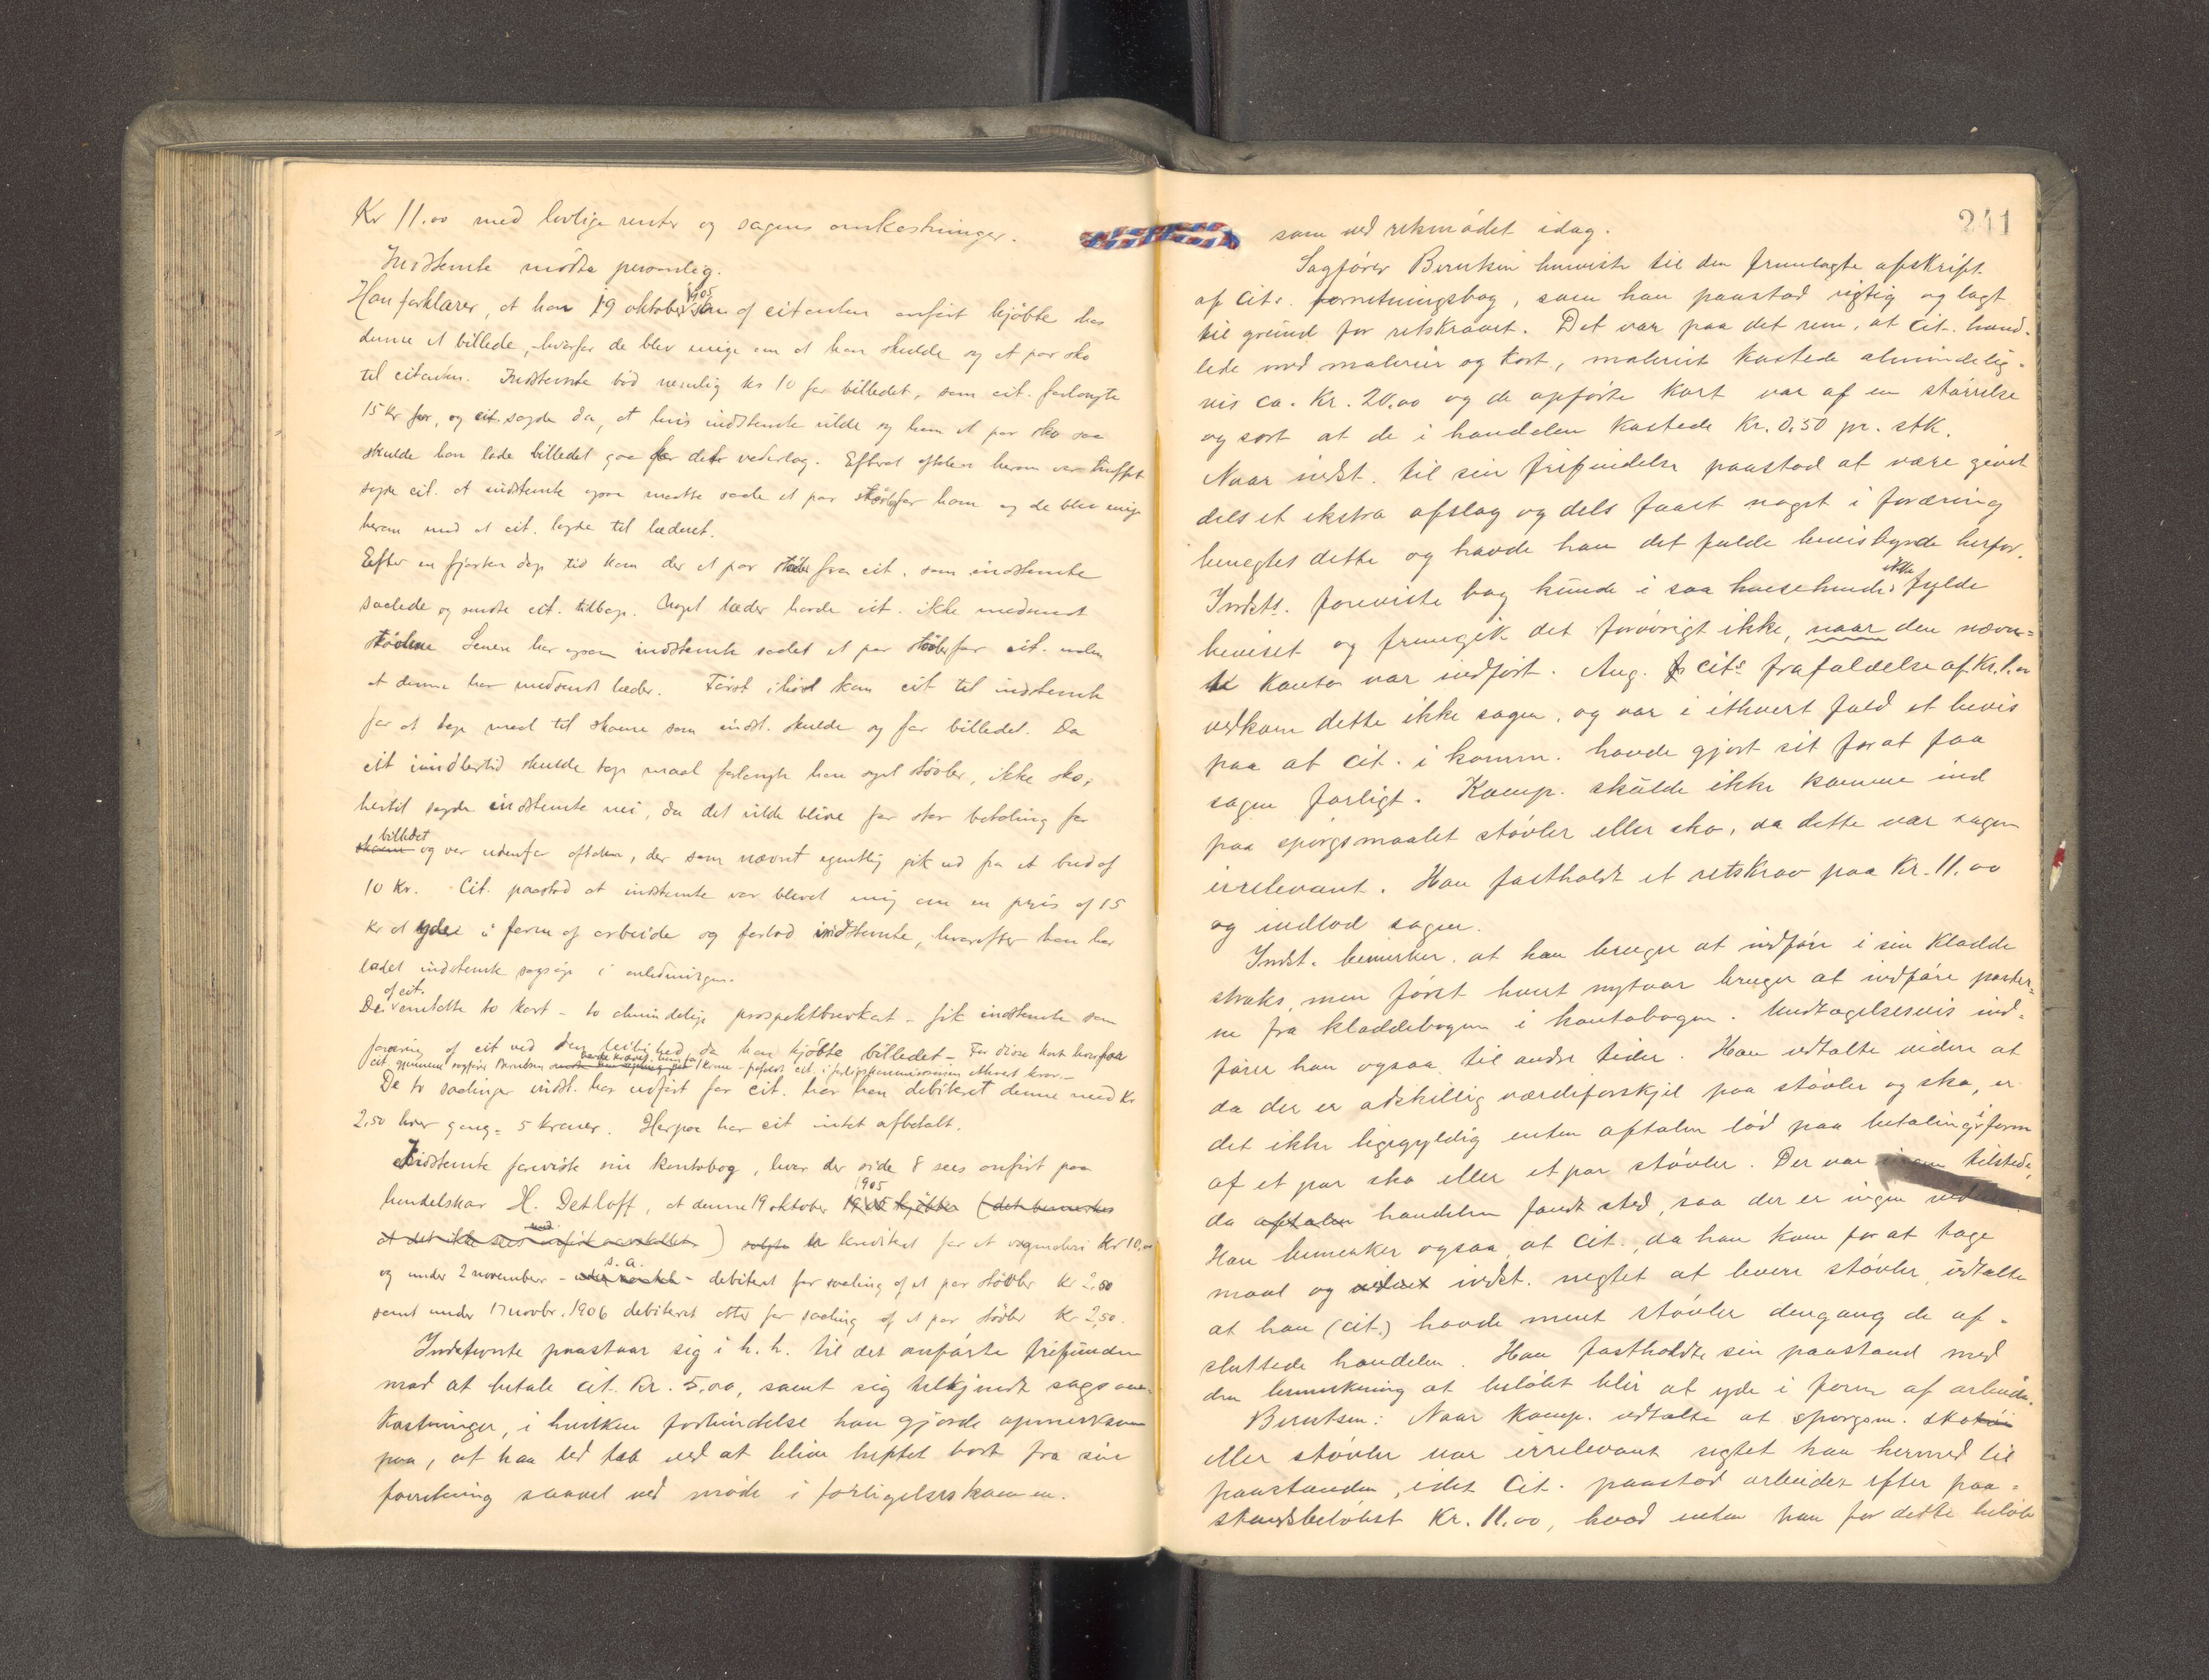 Kr 11.00 med lovlige renter og sagens omkostninger.
Indstemte mødte personlig.
Han forklarer, at han 19 oktober 1905 som af citanten anført kjöbte hos
denne et billede, hvorfor de blev enige om at han skulde sy et par sko
til citanten. Indstemte böd nemlig kr 10 for billedet, som cit. forlangte
15 kr for, og cit. sagde da, at hvis indstemte vilde sy ham et par sko saa
skulde han lade billedet gaa for dette vederlag. Efterat aftalen herom var truffet
sagde cit. at indstemte ogsaa maatte saale et par stövler for ham og de blev enige
herom med at cit. lagde til læderet.
Efter en fjorten dags tid kom der et par stövler fra cit. som indstemte
saalede og sendte cit. tilbage. Noget læder havde cit. ikke medsendt
stövlene. Senere har ogsaa indstemte saalet et par stövler for cit. uden
at denne har medsendt læder. Först i höst kom cit til indstemte
for at tage maal til skoene som indst. skulde sy for billedet. Da
cit imidlertid skulde tage maal forlangte han syet stövler, ikke sko;
hertil sagde indstemte nei, da det vilde blive for stor betaling for
billedet
skoene og var udenfor aftalen, der som nævnt egentlig gik ud fra et bud af
10 Kr. Cit. paastod at indstemte var blevet enig om en pris af 15
kr at yde i form af arbeide og forlod indstemte, hvorefter han har
ladet indstemte sagsöge i anledningen.
De af cit. omtalte to kort - to almindelige prospektbrevkort - fik indstemte som
foræring af cit ved den leilighed da han kjöbte billedet - For disse kort hvorfor
cit. gjennem sagförer Berntsen havde krævet ham for 1 krone - frafaldt cit. i forligskommissionen ethvert krav. -
De to saalinger indst. har udfört for cit. har han debiteret denne med Kr
2,50 hver gang = 5 kroner. Herpaa har cit intet afbetalt.
Indstemte foreviste sin kontobog, hvor der side 8 sees anfört paa
handelskar H. Detloff, at denne 19 oktober 1905 kjöbte (det bemærkes
at det ikke sees anfört med aarstallet) solgte er krediteret for et vægmaleri Kr 10,00
og under 2 november s. a. - debiteret for saaling af et par stövler Kr 2.50
samt under 17 novbr. 1906 debiteret atter for saaling af et par stövler Kr 2,50.
Indstemte paastaar sig i h. h. til det anförte frifunden
mod at betale cit. Kr. 5.00, samt sig tilkjendt sagsom-
kostninger, i hvilken forbindelse han gjorde opmerksom
paa, at han led tab ved at blive heftet bort fra sin
forretning saavel ved möde i forligelseskommen.
241
som ved retsmödet idag.
Sagförer Berntsen henviste til den fremlagte afskrift
af cits. forretningsbog, som han paastod rigtig og lagt
til grund for retskravet. Det var paa det rene, at cit. hand-
lede med malerier og kort, maleriet kostede almindelig-
vis ca. Kr. 20.00 og de opförte kort var af en störrelse
og sort at de i handelen kostede Kr. 0.50 pr. stk.
Naar indst. til sin frifindelse paastod at være givet
dels et ekstra afslag og dels faaet noget i foræring
benegtes dette og havde han det fulde bevisbyrde herfor.
Indsts. foreviste bog kunde i saa henseende ikke fylde
beviset og fremgik det forövrigt ikke, naar den nævn-
te konto var indfört. Ang. cits frafaldelse af Kr. 1.00
vedkom dette ikke sagen, og var i ethvert fald et bevis
paa at cit. i komm. havde gjort sit for at faa
sagen forligt. Komp. skulde ikke komme ind
paa spörgsmaalet stövler eller sko, da dette var sagen
irrelevant. Han fastholdt et retskrav paa Kr. 11.00
og indlod sagen.
Indst. bemerker at han bruger at indföre i sin Kladde
straks, men först hvert nytaar bruger at indföre poster-
ne fra kladdebogen i kontobogen. Undtagelsesvis ind-
förer han ogsaa til andre tider. Han udtalte videre at
da der er adskillig værdiforskjel paa stövler og sko, er
det ikke ligegyldig enten aftalen löd paa betaling i form
af et par sko eller et par stövler. Der var ingen tilstede,
da aftalen handelen fandt sted, saa der er ingen
Han bemerker ogsaa at cit., da han kom for at tage
maal og indst. negtet at levere stövler, udtalte
at han (cit.) havde ment stövler dengang de af-
sluttede handelen. Han fastholdte sin paastand med
den bemerkning at belöbet blir at yde i form af arbeide.
Berntsen: Naar Komp. udtalte at spörgsm. sko
eller stövler var irrelevant sigtet han hermed til
paastanden, idet cit. paastod arbeidet efter paa-
standsbelöbet Kr. 11.00, hvad enten han for dette belöb